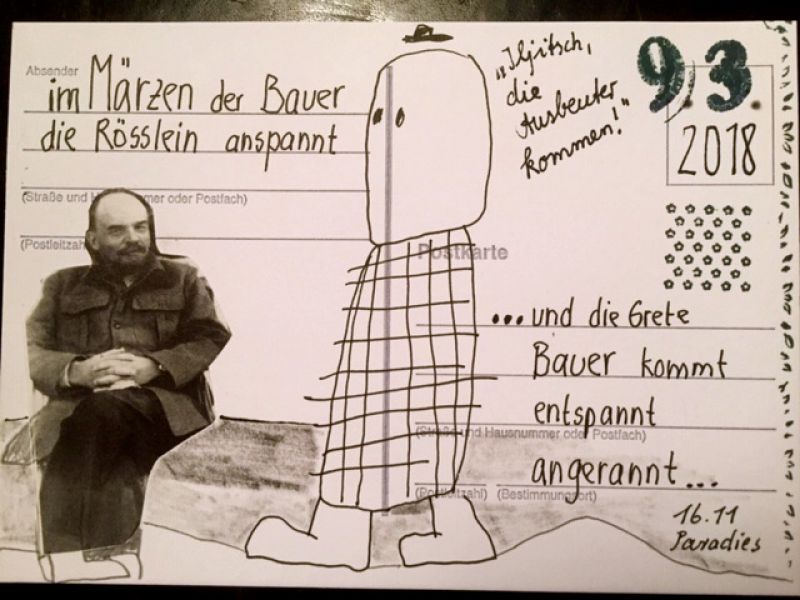 Absender
im Märzen der Bauer
die Rösslein anspannt
(Straße und Hausnummer oder Postfach)
(Postleitzahl)
"Iljitsch,
die
Ausbeuter
kommen!"
9.3.
2018
Postkarte
...und die Grete
Bauer kommt
entspannt
(Straße und Hausnummer oder Postfach)
angerannt...
(Postleitzahl) (Bestimmungsort)
16.11
Paradies